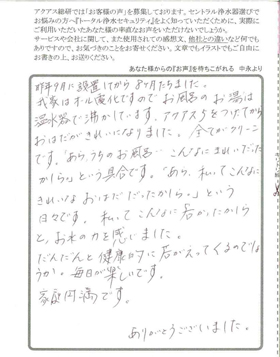 アクアス総研では「お客様の声」を募集しております。セントラル浄水器選びで
お悩みの方へ『トータル浄水セキュリティ』をよく知っていただくために、実際に
ご利用いただいたあなた様の率直なお声をいただけないでしょうか。
サービスや会社に関して、また使用されての感想文、他社との違いなど何でも
ありですので、お気づきのことをお寄せください。文章でもイラストでもご自由に
お書きの上、お送りください。
あなた様からの『お声』を待ちこがれる 中永より
昨年9月に設置してから8ヶ月たちました。
我家はオール電化ですのでお風呂のお湯は
温水器で沸かしています。アクアスをつけてから
おはだがきれいになりました。全てがクリーン
です。あら、うちのお風呂…こんなにきれいだった
かしら。という具合です。「あら、私ってこんなに
きれいなおはだだったかしら。」という
日々です。私ってこんなに若かったかしら
と、お水の力を感じました。
だんだんと健康的に若がえってくるのでしょ
うか。毎日が楽しいです。
家庭円満です。
ありがとうございました。